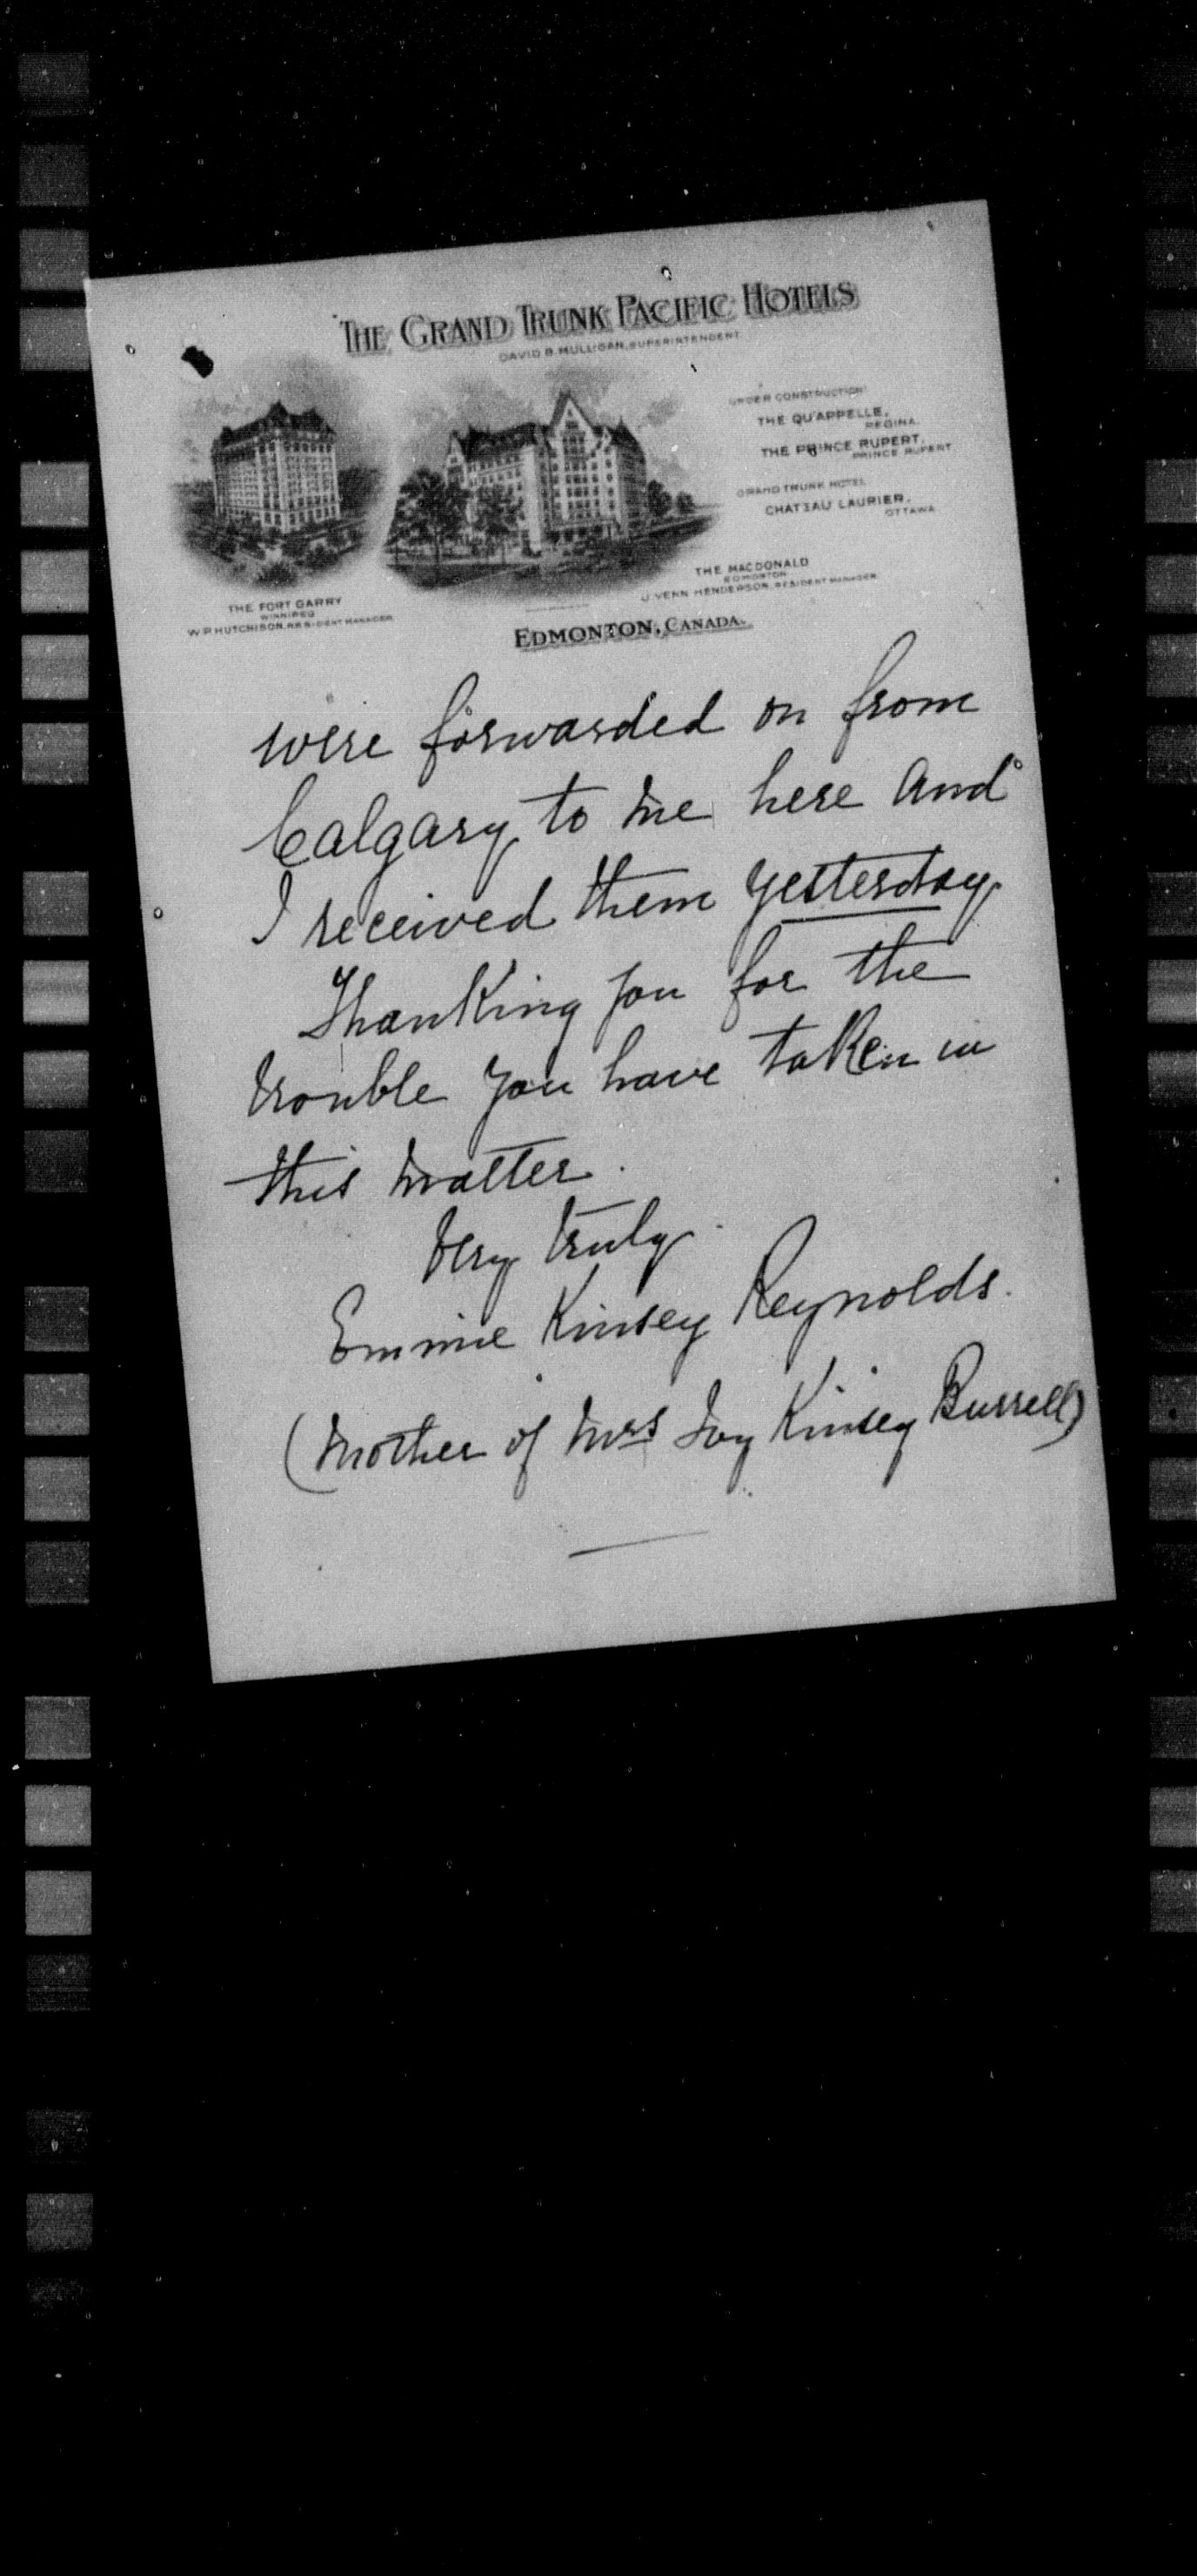 THE GRAND TRUNK PACIFIC HOTELS
DAVID B. MULLIGAN, SUPERINTENDENT
UNDER CONSTRUCTION
THE QU'APPELLE,
REGINA.
THE PRINCE RUPERT,
PRINCE RUPERT
GRAND TRUNK HOTEL
CHATEAU LAURIER,
OTTAWA
THE MACDONALD
EDMONTON
J. VENN HENDERSON, RESIDENT MANAGER
THE FORT GARRY
WINNIPEG
W. P. HUTCHISON, RESIDENT MANAGER
EDMONTON, CANADA.
were forwarded on from
Calgary to me here and
I received them yesterday
Thanking you for the
trouble you have taken in
this matter.
Very truly.
Emmie Kinsey Reynolds.
(Mother of Mrs Kinsey Burrell)